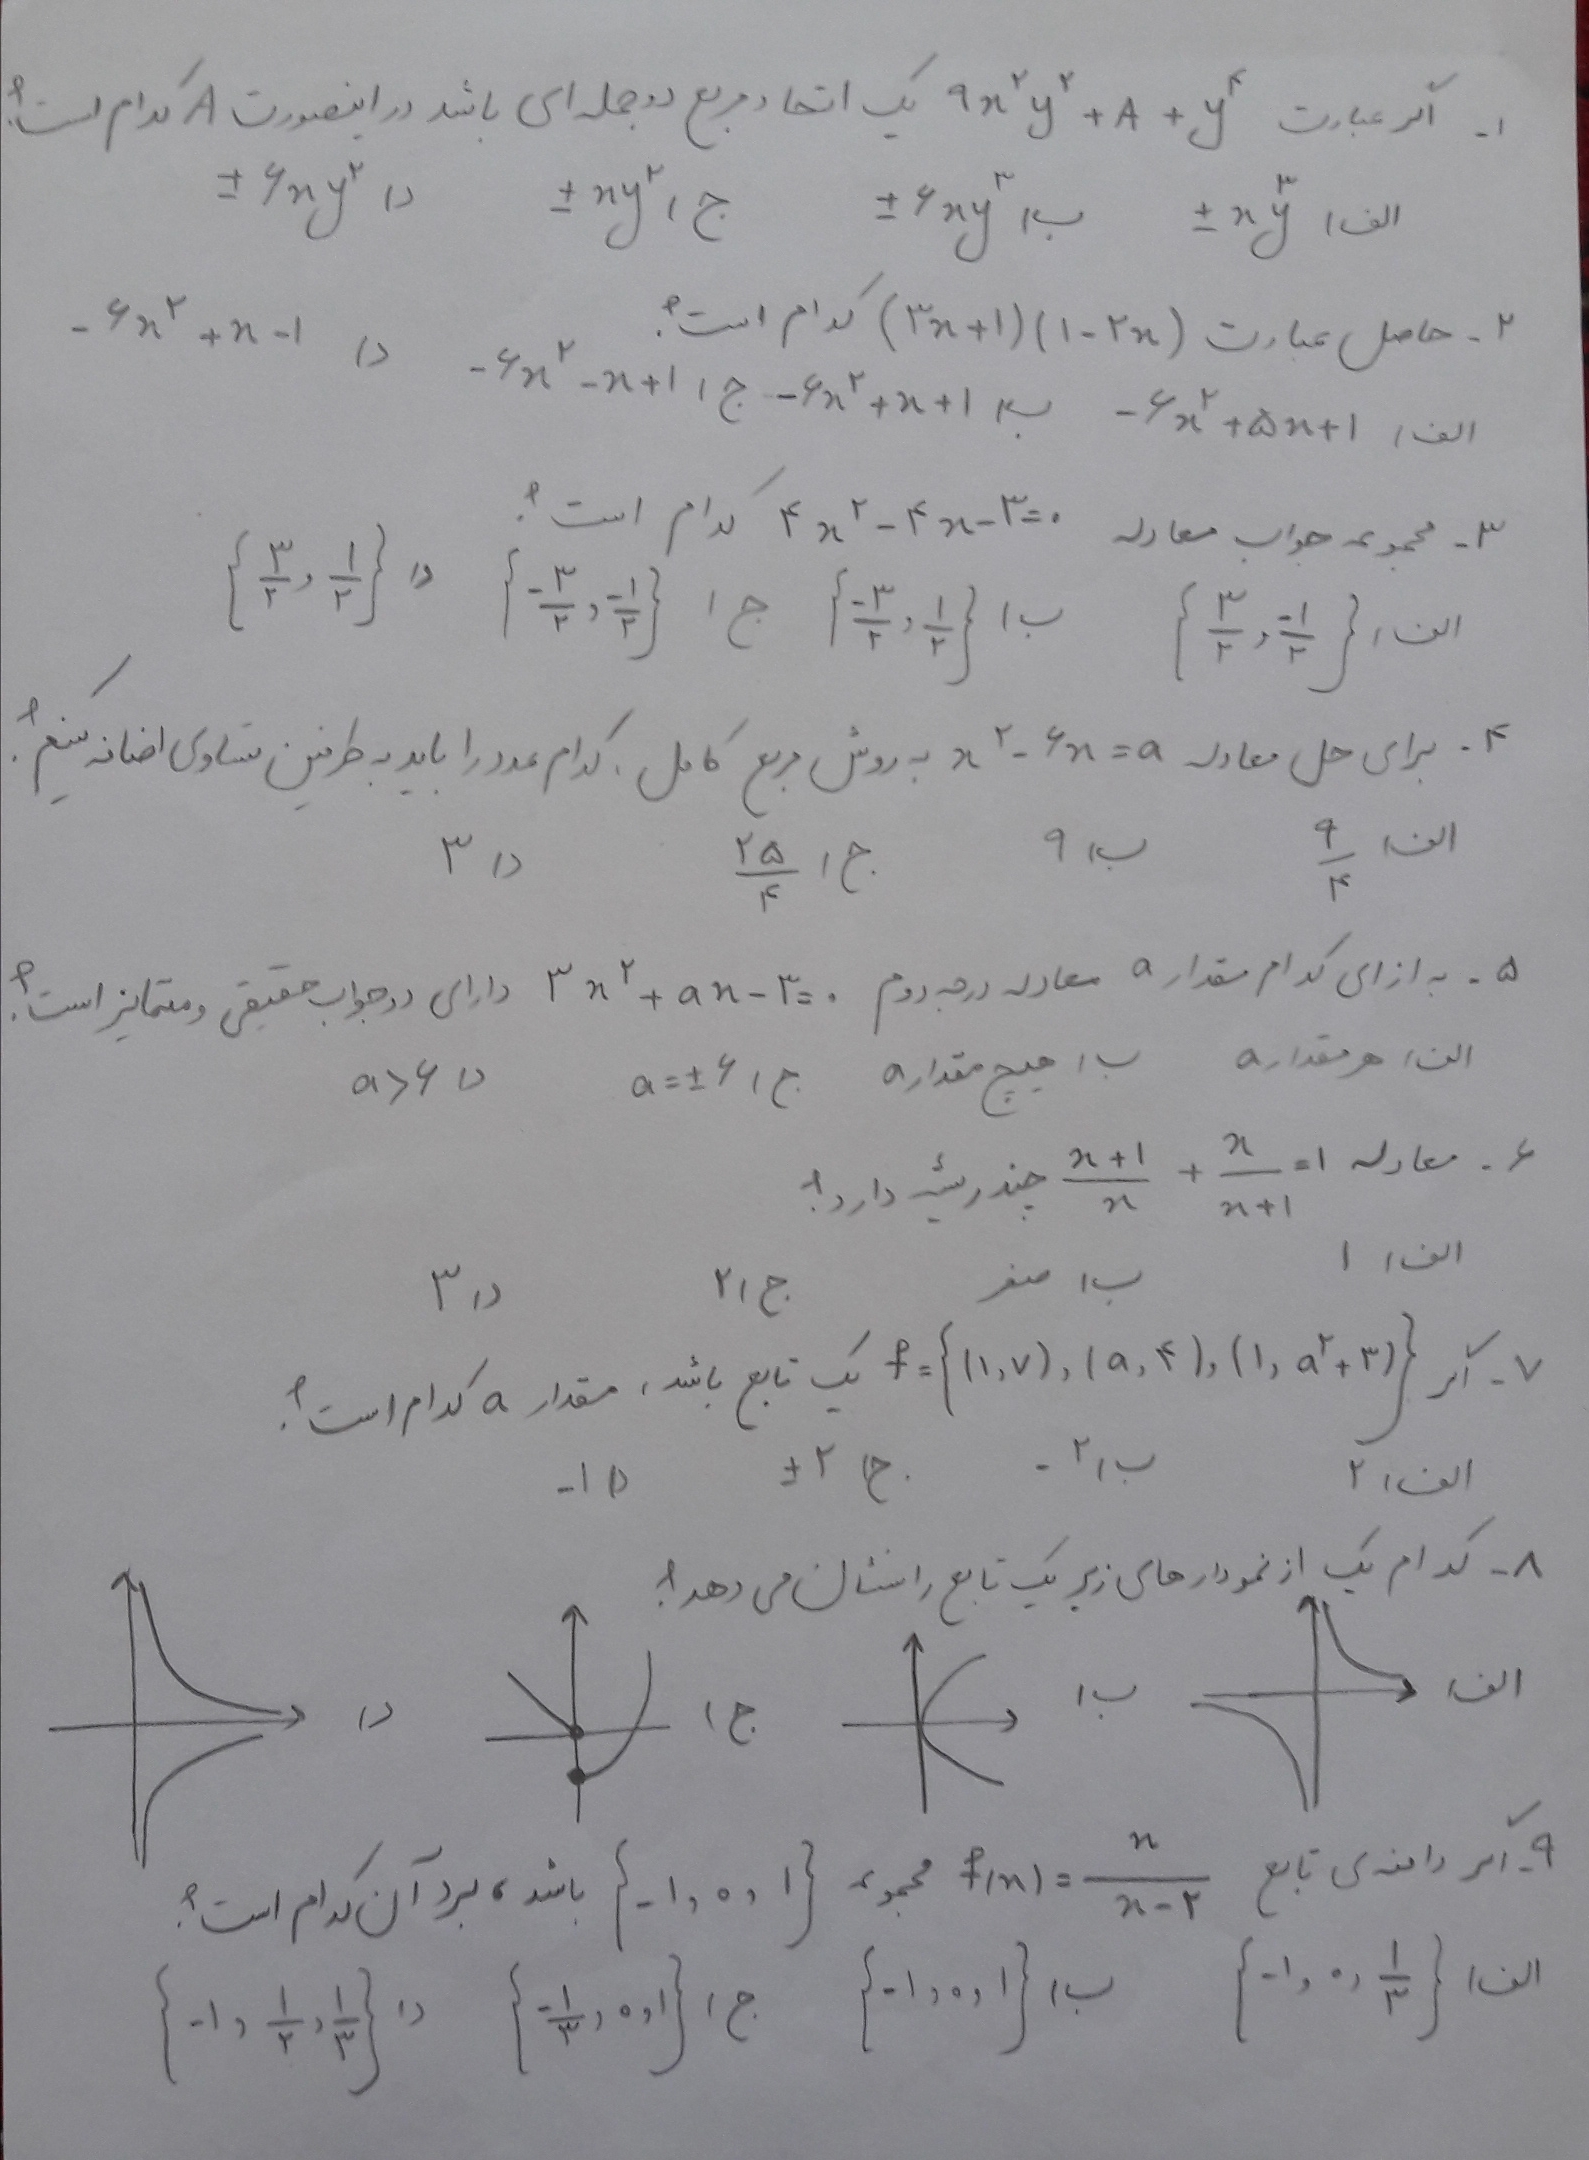 ۱- اگر عبارت ۹x²y² + A + y⁴ یک اتحاد مربع دوجمله ای باشد در اینصورت A کدام است؟
الف) ±xy³ ب) ±۶xy³ ج) ±xy² د) ±۶xy²
۲- حاصل عبارت (۳x+۱)(۱-۲x) کدام است؟
الف) -۶x²+۵x+۱ ب) -۶x²+x+۱ ج) -۶x²-x+۱ د) -۶x²+x-۱
۳- مجموعه جواب معادله ۴x²-۴x-۳=۰ کدام است؟
الف) {۳/۲, -۱/۲} ب) {-۳/۲, ۱/۲} ج) {-۳/۲, -۱/۲} د) {۳/۲, ۱/۲}
۴- برای حل معادله x²-۶x=a به روش مربع کامل، کدام عدد را باید به طرفین تساوی اضافه کنیم؟
الف) ۹/۴ ب) ۹ ج) ۲۵/۴ د) ۳
۵- به ازای کدام مقدار a معادله درجه دوم ۳x²+ax-۳=۰ دارای دو جواب حقیقی و متمایز است؟
الف) هر مقدار a ب) هیچ مقدار a ج) a=±۶ د) a>۶
۶- معادله (x+۱)/x + x/(x+۱) =۱ چند ریشه دارد؟
الف) ۱ ب) صفر ج) ۲ د) ۳
۷- اگر f={(۱,۷),(a,۴),(۱,a²+۳)} یک تابع باشد، مقدار a کدام است؟
الف) ۲ ب) -۲ ج) ±۲ د) -۱
۸- کدام یک از نمودارهای زیر یک تابع را نشان می دهد؟
الف) ب) ج) د)
۹- اگر دامنه ی تابع f(x)=x/(x-۲) مجموعه {-۱,۰,۱} باشد، برد آن کدام است؟
الف) {-۱,۰,۱/۳} ب) {-۱,۰,۱} ج) {-۱/۳,۰,۱} د) {-۱,۱/۲,۱/۳}